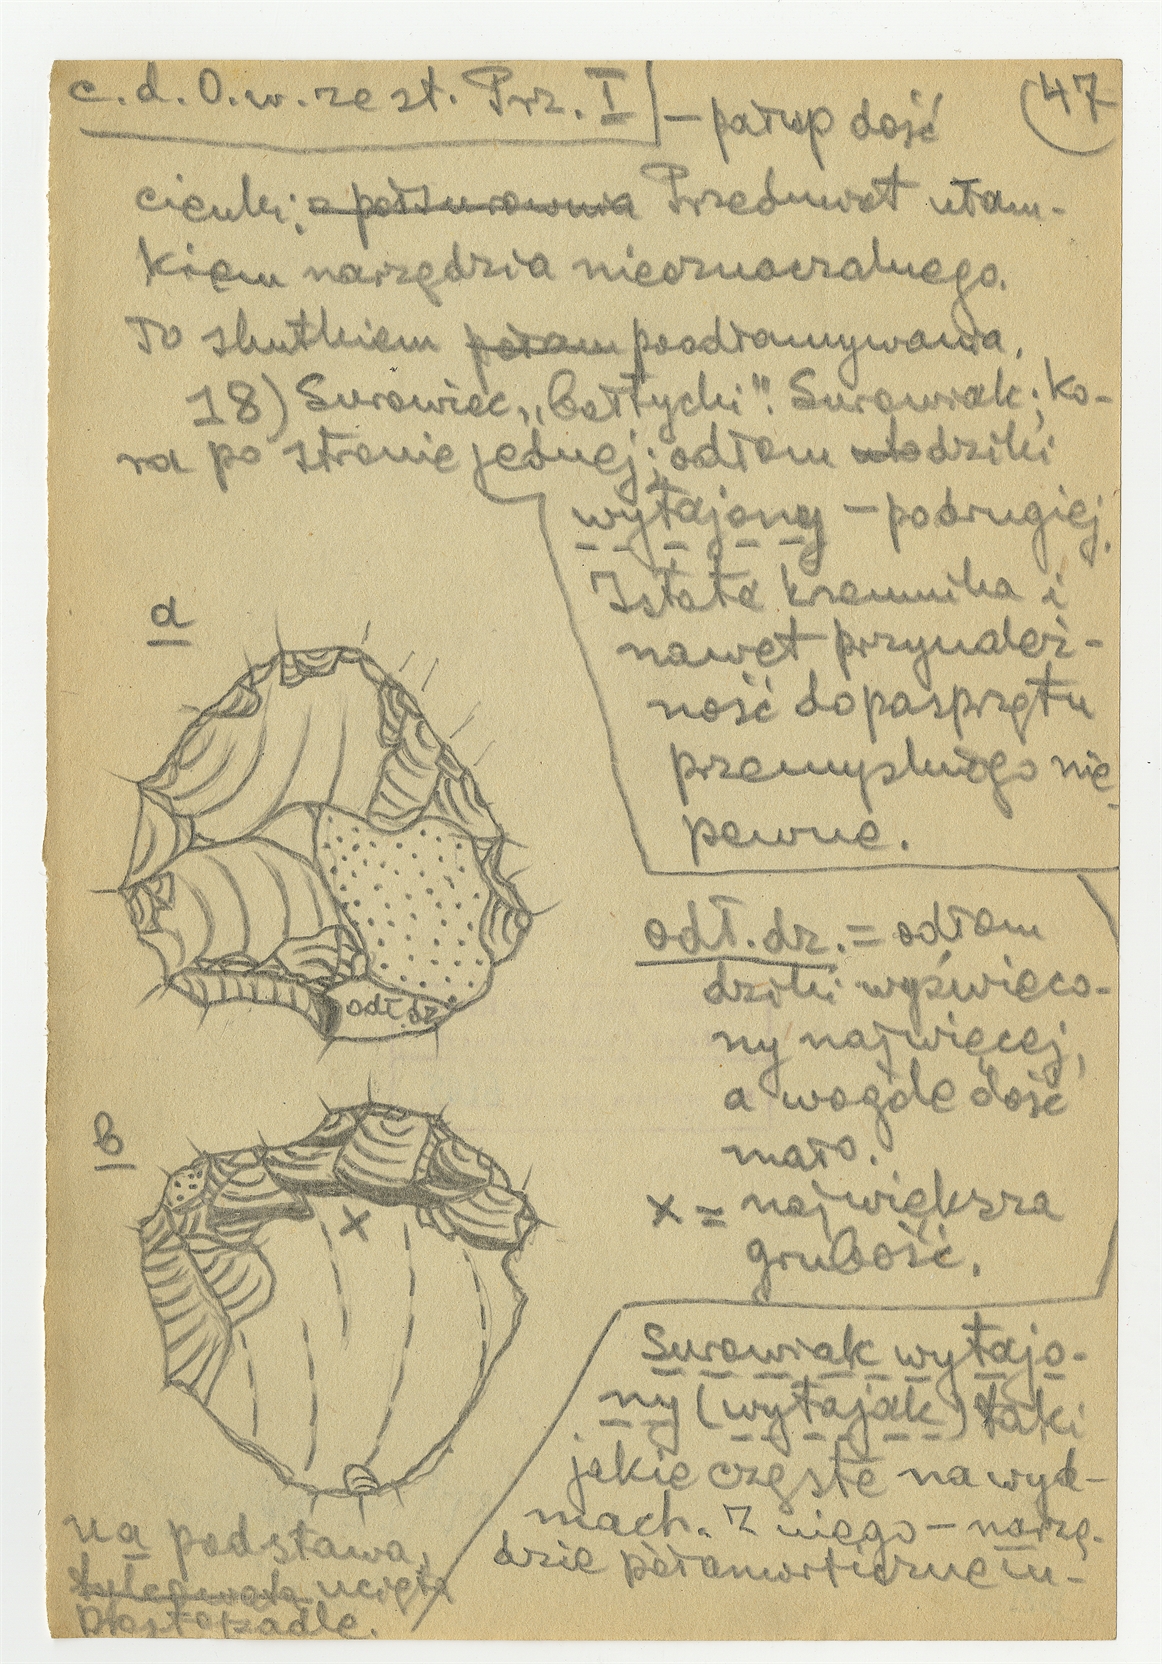 c. d. O. w. ze st. Prz. I
47
— patup dość
cienki; a półsurownia Przedmiot ułam-
kiem narzędzia nieoznaczalnego.
To skutkiem połam poodłamywania.
18) Surowiec „bałtycki". Surowiak; ko-
ra po stronie jednej; odłam dziki
wyłajony — po drugiej.
Istota krzemnika i
nawet przynależ-
ność do pasprzętu
przemysłnego nie
pewne.
a
odł. dz.
odł. dz. = odłam
dziki wyświeco-
ny najwięcej,
a wogóle dość
mało.
x = największa
grubość.
b
x
Surowiak wyłajo-
ny (wyłajak) taki
jakie częste na wyd-
mach. Z niego — narzę-
dzie połamorficzne in-
na podstawa,
ucięta
prostopadle.